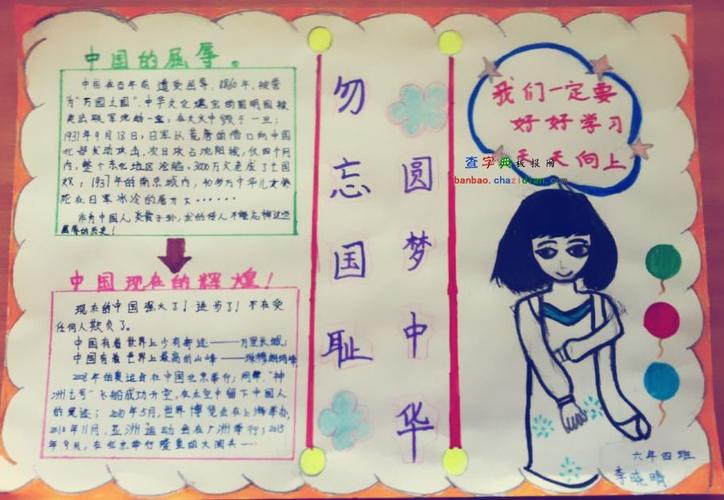 中国的屈辱。
中国在百年前遭受屈辱，1860年，被誉
为"万园之园"、中华文化瑰宝的圆明园被
英法联军洗劫一空，在大火中毁于一旦；
1931年9月18日，日军以
北部发动攻击，次日攻占沈阳城，仅四个月
内，整个东北地区沦陷，3000万
奴；1937年的南京城内，
死在日军冰冷的屠刀下······
所有中国人，炎黄子孙，龙的传人不能忘掉这些
屈辱的历史！
中国现在的辉煌！
现在的中国强大了！进步了！不在受
任何人欺负了。
中国有着世界上少有都迹——万里长城；
中国有着世界上最高的山峰——珠穆朗玛峰
2008年的奥运会在中国北京举行；同年"神
洲七号"飞船成功升空，在太空中留下中国人
的足迹；2010年5月，世界博览会在上海举办，
2010年11月，亚洲运动会在广洲举行；2015
年9月，在北京举行隆重的大阅兵······
勿忘国耻
圆梦中华
我们一定要
好好学习
天天向上
查字典板报网
banbao.chazidian.com
六年四班
李晓晴